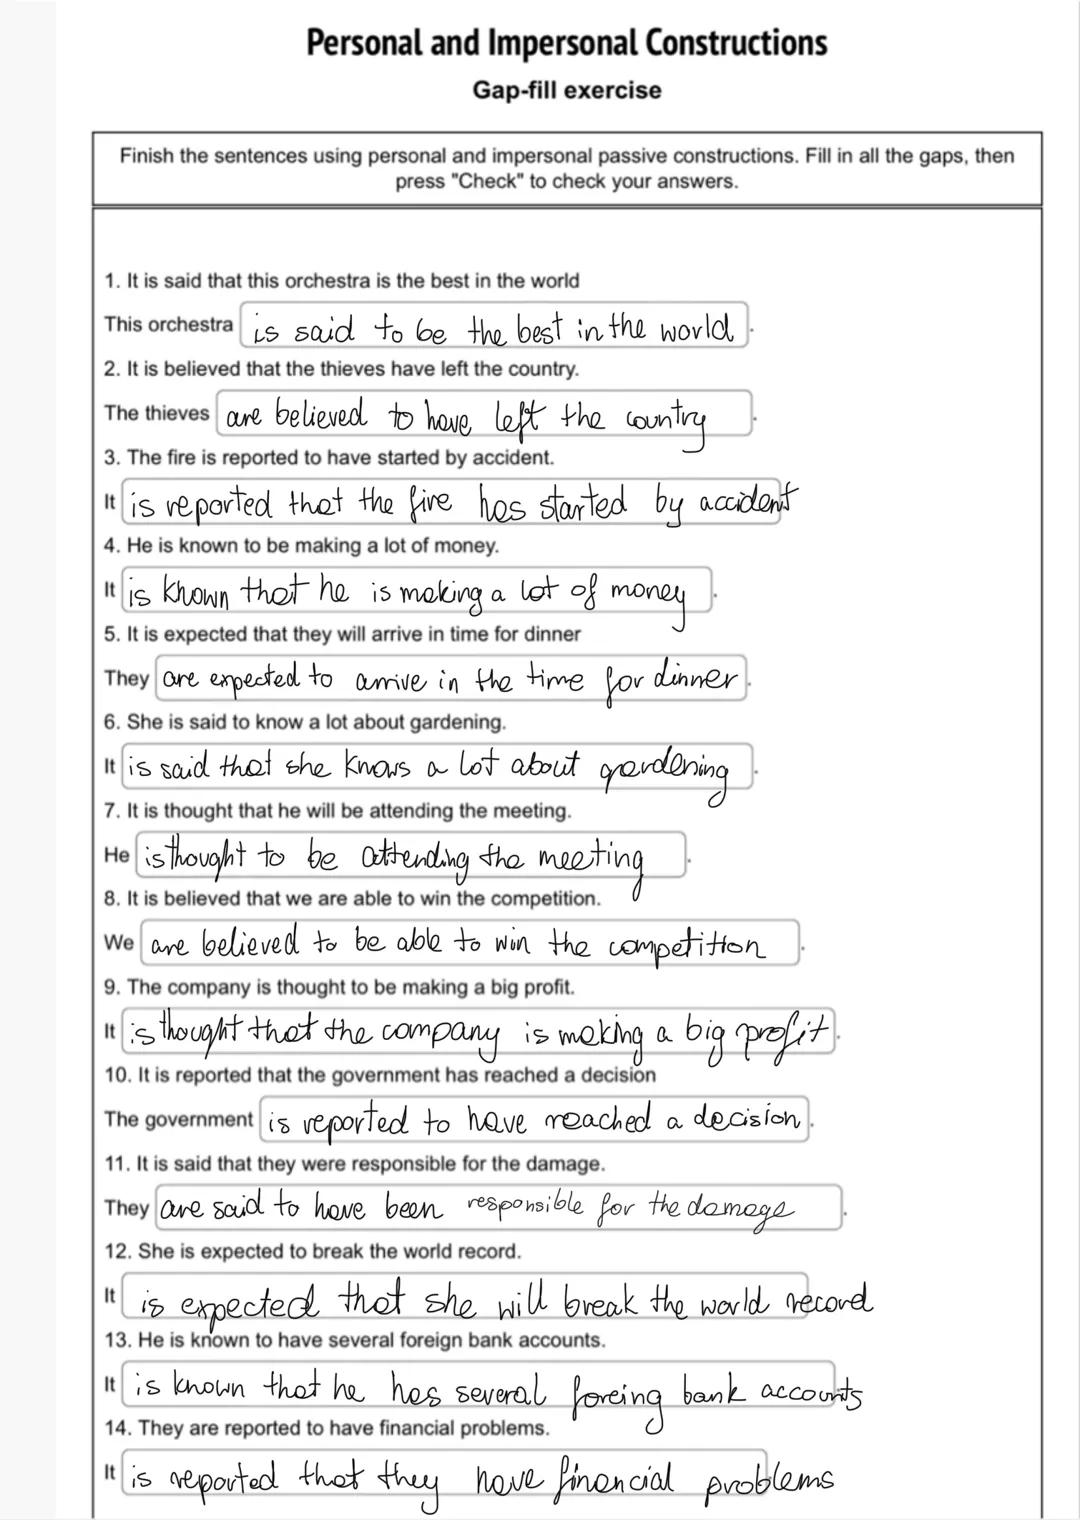 Personal and Impersonal Constructions
Gap-fill exercise
Finish the sentences using personal and impersonal passive constructions. Fill in all the gaps, then
press "Check" to check your answers.
1. It is said that this orchestra is the best in the world
This orchestra is said to be the best in the world.
2. It is believed that the thieves have left the country.
The thieves are believed to have left the country.
3. The fire is reported to have started by accident.
It is reported that the fire has started by accident
4. He is known to be making a lot of money.
It is known that he is making a lot of money.
5. It is expected that they will arrive in time for dinner
They are expected to arrive in the time for dinner.
6. She is said to know a lot about gardening.
It is said that she knows a lot about gardening.
7. It is thought that he will be attending the meeting.
He is thought to be attending the meeting.
8. It is believed that we are able to win the competition.
We are believed to be able to win the competition.
9. The company is thought to be making a big profit.
It is thought that the company is making a big profit.
10. It is reported that the government has reached a decision
The government is reported to have reached a decision.
11. It is said that they were responsible for the damage.
They are said to have been responsible for the damage.
12. She is expected to break the world record.
It is expected that she will break the world record
13. He is known to have several foreign bank accounts.
It is known that he has several foreing bank accounts
14. They are reported to have financial problems.
It is reported that they have financial problems